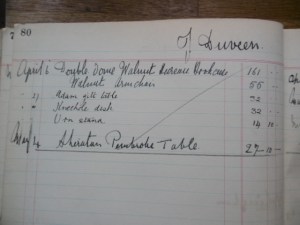 80
Of Duveen.
April 1 Double Dome Walnut Bookcase 161 -
Walnut Armchair 55 -
" 23 Adam gilt table 32 -
" " Kneehole desk 32 -
Urn 14 10
May 4 Sheraton Pembroke Table 27 - 10 -